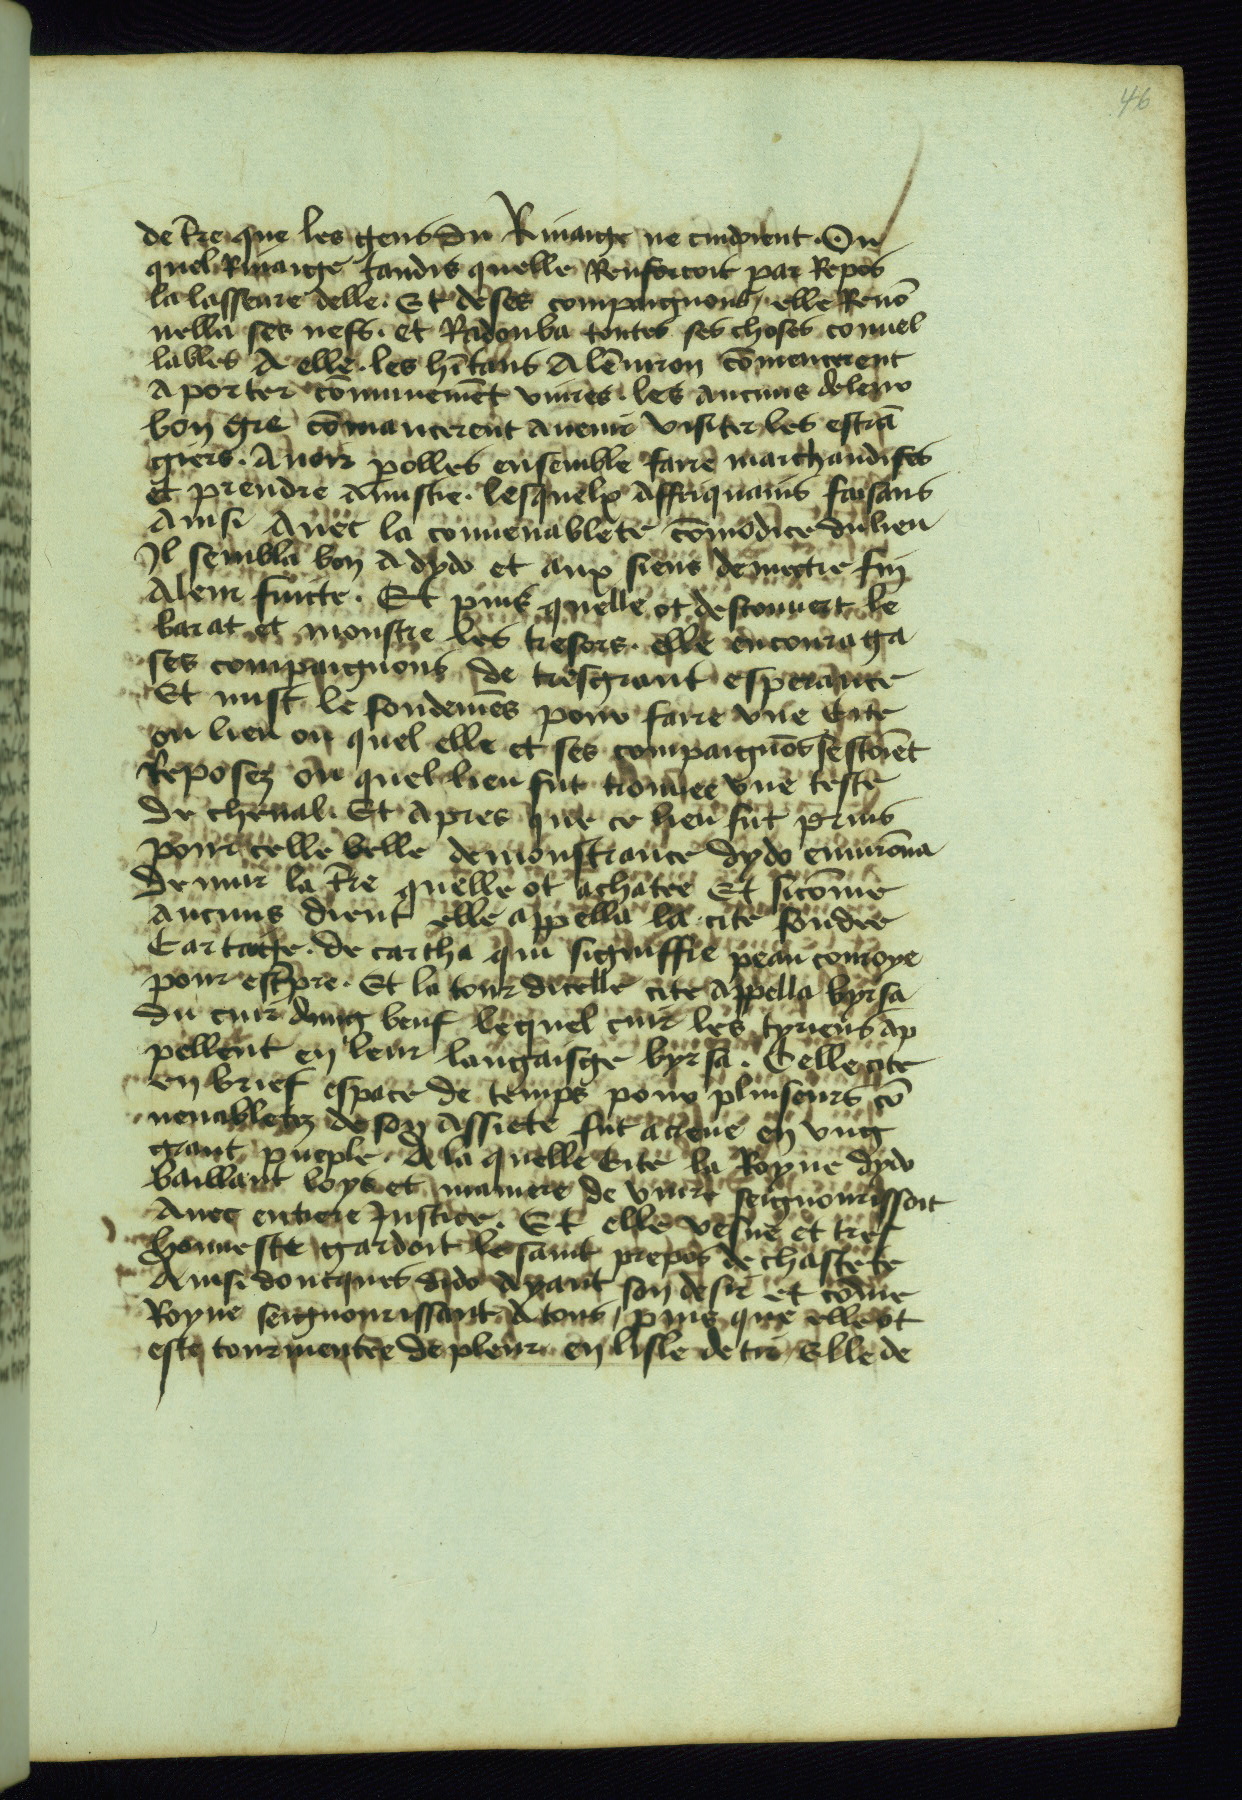 46
de t̄re que les gens du Riuaige ne cuidoient. Ou
quel Riuaige tandis quelle Renforcoit par Repos
la lasseure delle. Et de ses compaignons elle Renō
uella ses nefs. et Radouba toutes ses choses conuel
lables A elle. les hītans Alēuiron cōmencerent
Aporter cōmunemēt viures. les aucuns de leur
bon gre cōmancerent auenir visiter les estrā
giers. Auoir polles ensemble faire marchandises
et prendre amistie. lesquelx Affriquains faisans
Ainsi Auec la conuenablete cōmodice du lieu
Il sembla bon A dydo et aux siens de mectre fin
Aleur fuicte. Et puis quelle ot descouuert le
barat et monstre les tresors. elle encouraga
ses compaignons de tresgrant esperance
Et mist le fondemēs pour faire vne Cite
ou lieu ou quel elle et ses compaignōs sestoiēt
Reposez ou quel lieu fut trouuee vne teste
de cheual. Et Apres que ce lieu fut prins
pour celle belle demonstrance dydo enuirōna
de mur la t̄re quelle ot achatee Et sicōme
aucuns dient elle appella la cite fondee
Cartaige. de cartha qui signiffie peau conroye
pour esc̄pre. Et la tour dicelle cite Appella byrsa
du cuir dung beuf lequel cuir les tyriens ap
pellent en leur langaisge byrsa. Celle cite
en brief espace de temps pour pluiseurs cō
uenabletez de son Assiete fut acreue en vng
grant pueple. A la quelle Cite la Royne dydo
baillant loys et maniere de viure seignourissoit
Auec entiere Justice. Et elle vefue et tres
honneste gardoit le saint propos de chastete
Ainsi doncques dido Ayant son desir et cōme
Royne seignourissant A tous, puis que elle ot
este tourmentee de pleur en lisle de tir, Elle de